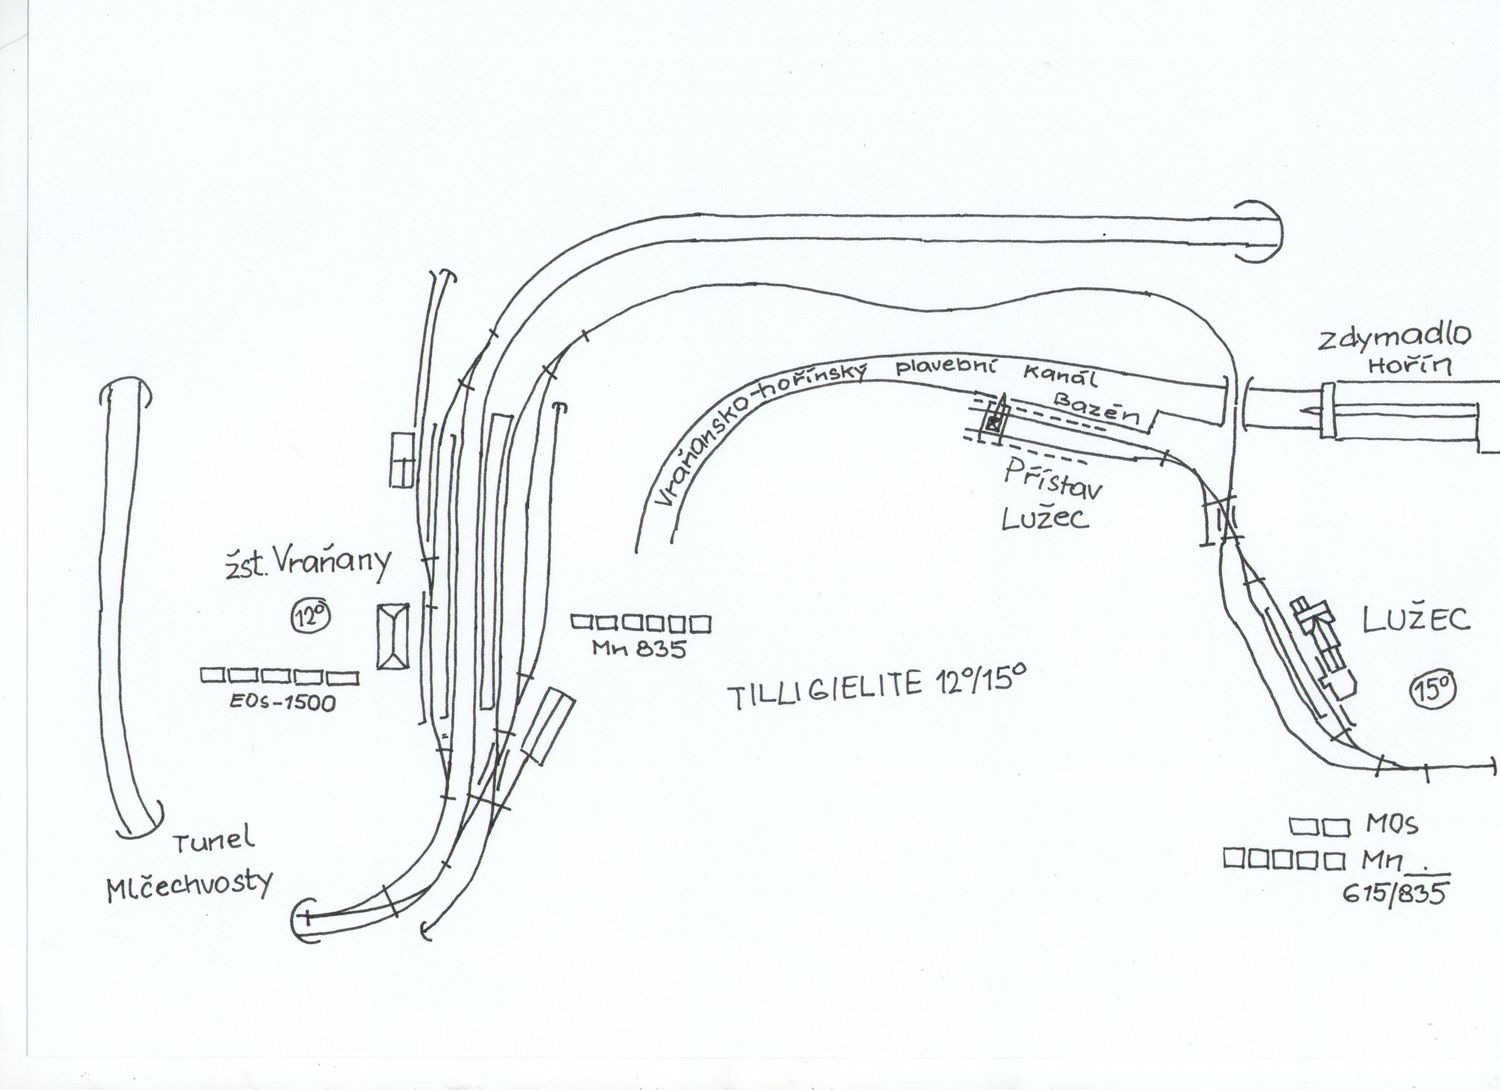 Zdymadlo
Hořín
Vraňansko-hořínský plavební kanál
Bazén
Přístav
Lužec
žst. Vraňany
12º
EOS-1500
Mn 835
TILLIG ELITE 12º/15º
LUŽEC
15º
MOs
Mn
615/835
Tunel
Mlčechvosty